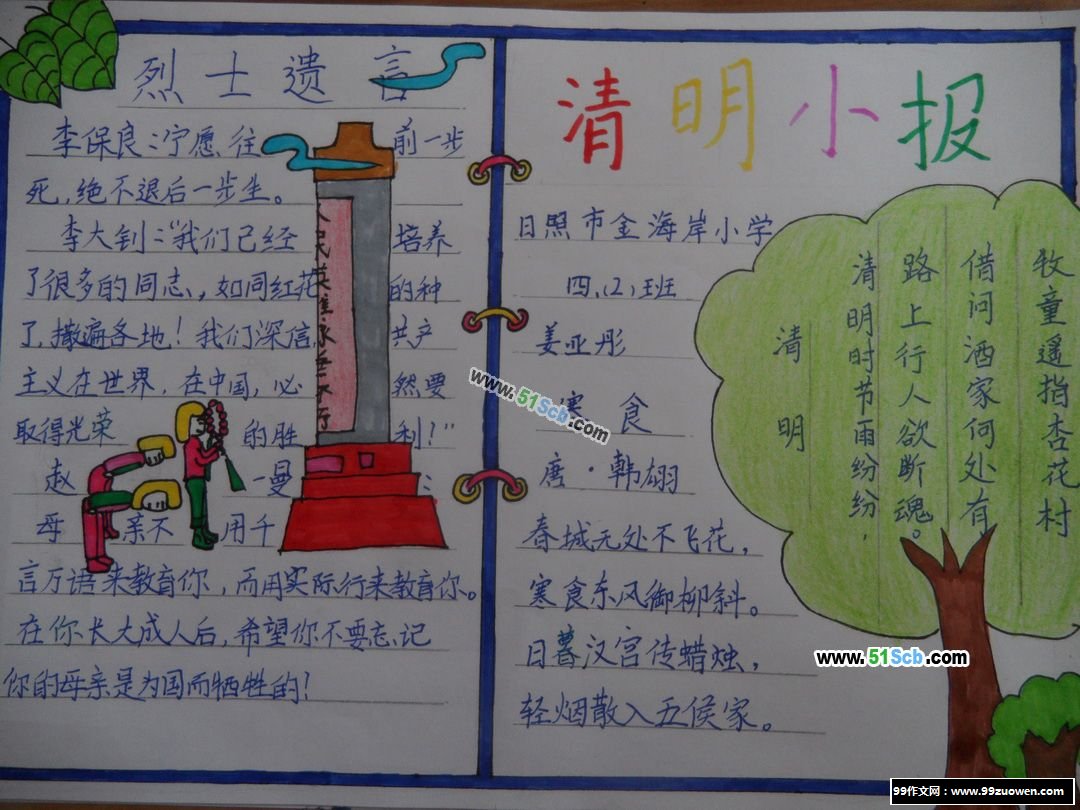 烈士遗言
李保良：宁愿往前一步
死，绝不退后一步生。
李大钊：“我们已经培养
了很多的同志，如同红花的种
了，撒遍各地！我们深信，共产
主义在世界，在中国，必然要
取得光荣的胜利！”
赵一曼：
母亲不用千
言万语来教育你，而用实际行来教育你。
在你长大成人后，希望你不要忘记
你的母亲是为国而牺牲的！
人民英雄永垂不朽
清明小报
日照市金海岸小学
四、(2)班
姜亚彤
寒食
唐·韩翃
春城无处不飞花，
寒食东风御柳斜。
日暮汉宫传蜡烛，
轻烟散入五侯家。
清明
清明时节雨纷纷，
路上行人欲断魂。
借问酒家何处有，
牧童遥指杏花村
www.51Scb.com
www.51Scb.com
99作文网：www.99zuowen.com